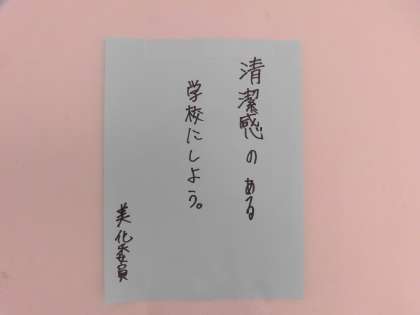 清潔感のある
学校にしよう。
美化委員